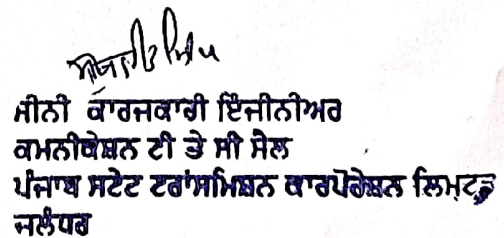 ਸੀਨੀ ਕਾਰਜਕਾਰੀ ਇੰਜੀਨੀਅਰ
ਕਮਨੀਕੇਸ਼ਨ ਟੀ ਤੇ ਸੀ ਸੈਲ
ਪੰਜਾਬ ਸਟੇਟ ਟਰਾਂਸਮਿਸ਼ਨ ਕਾਰਪੋਰੇਸ਼ਨ ਲਿਮਟਡ
ਜਲੰਧਰ